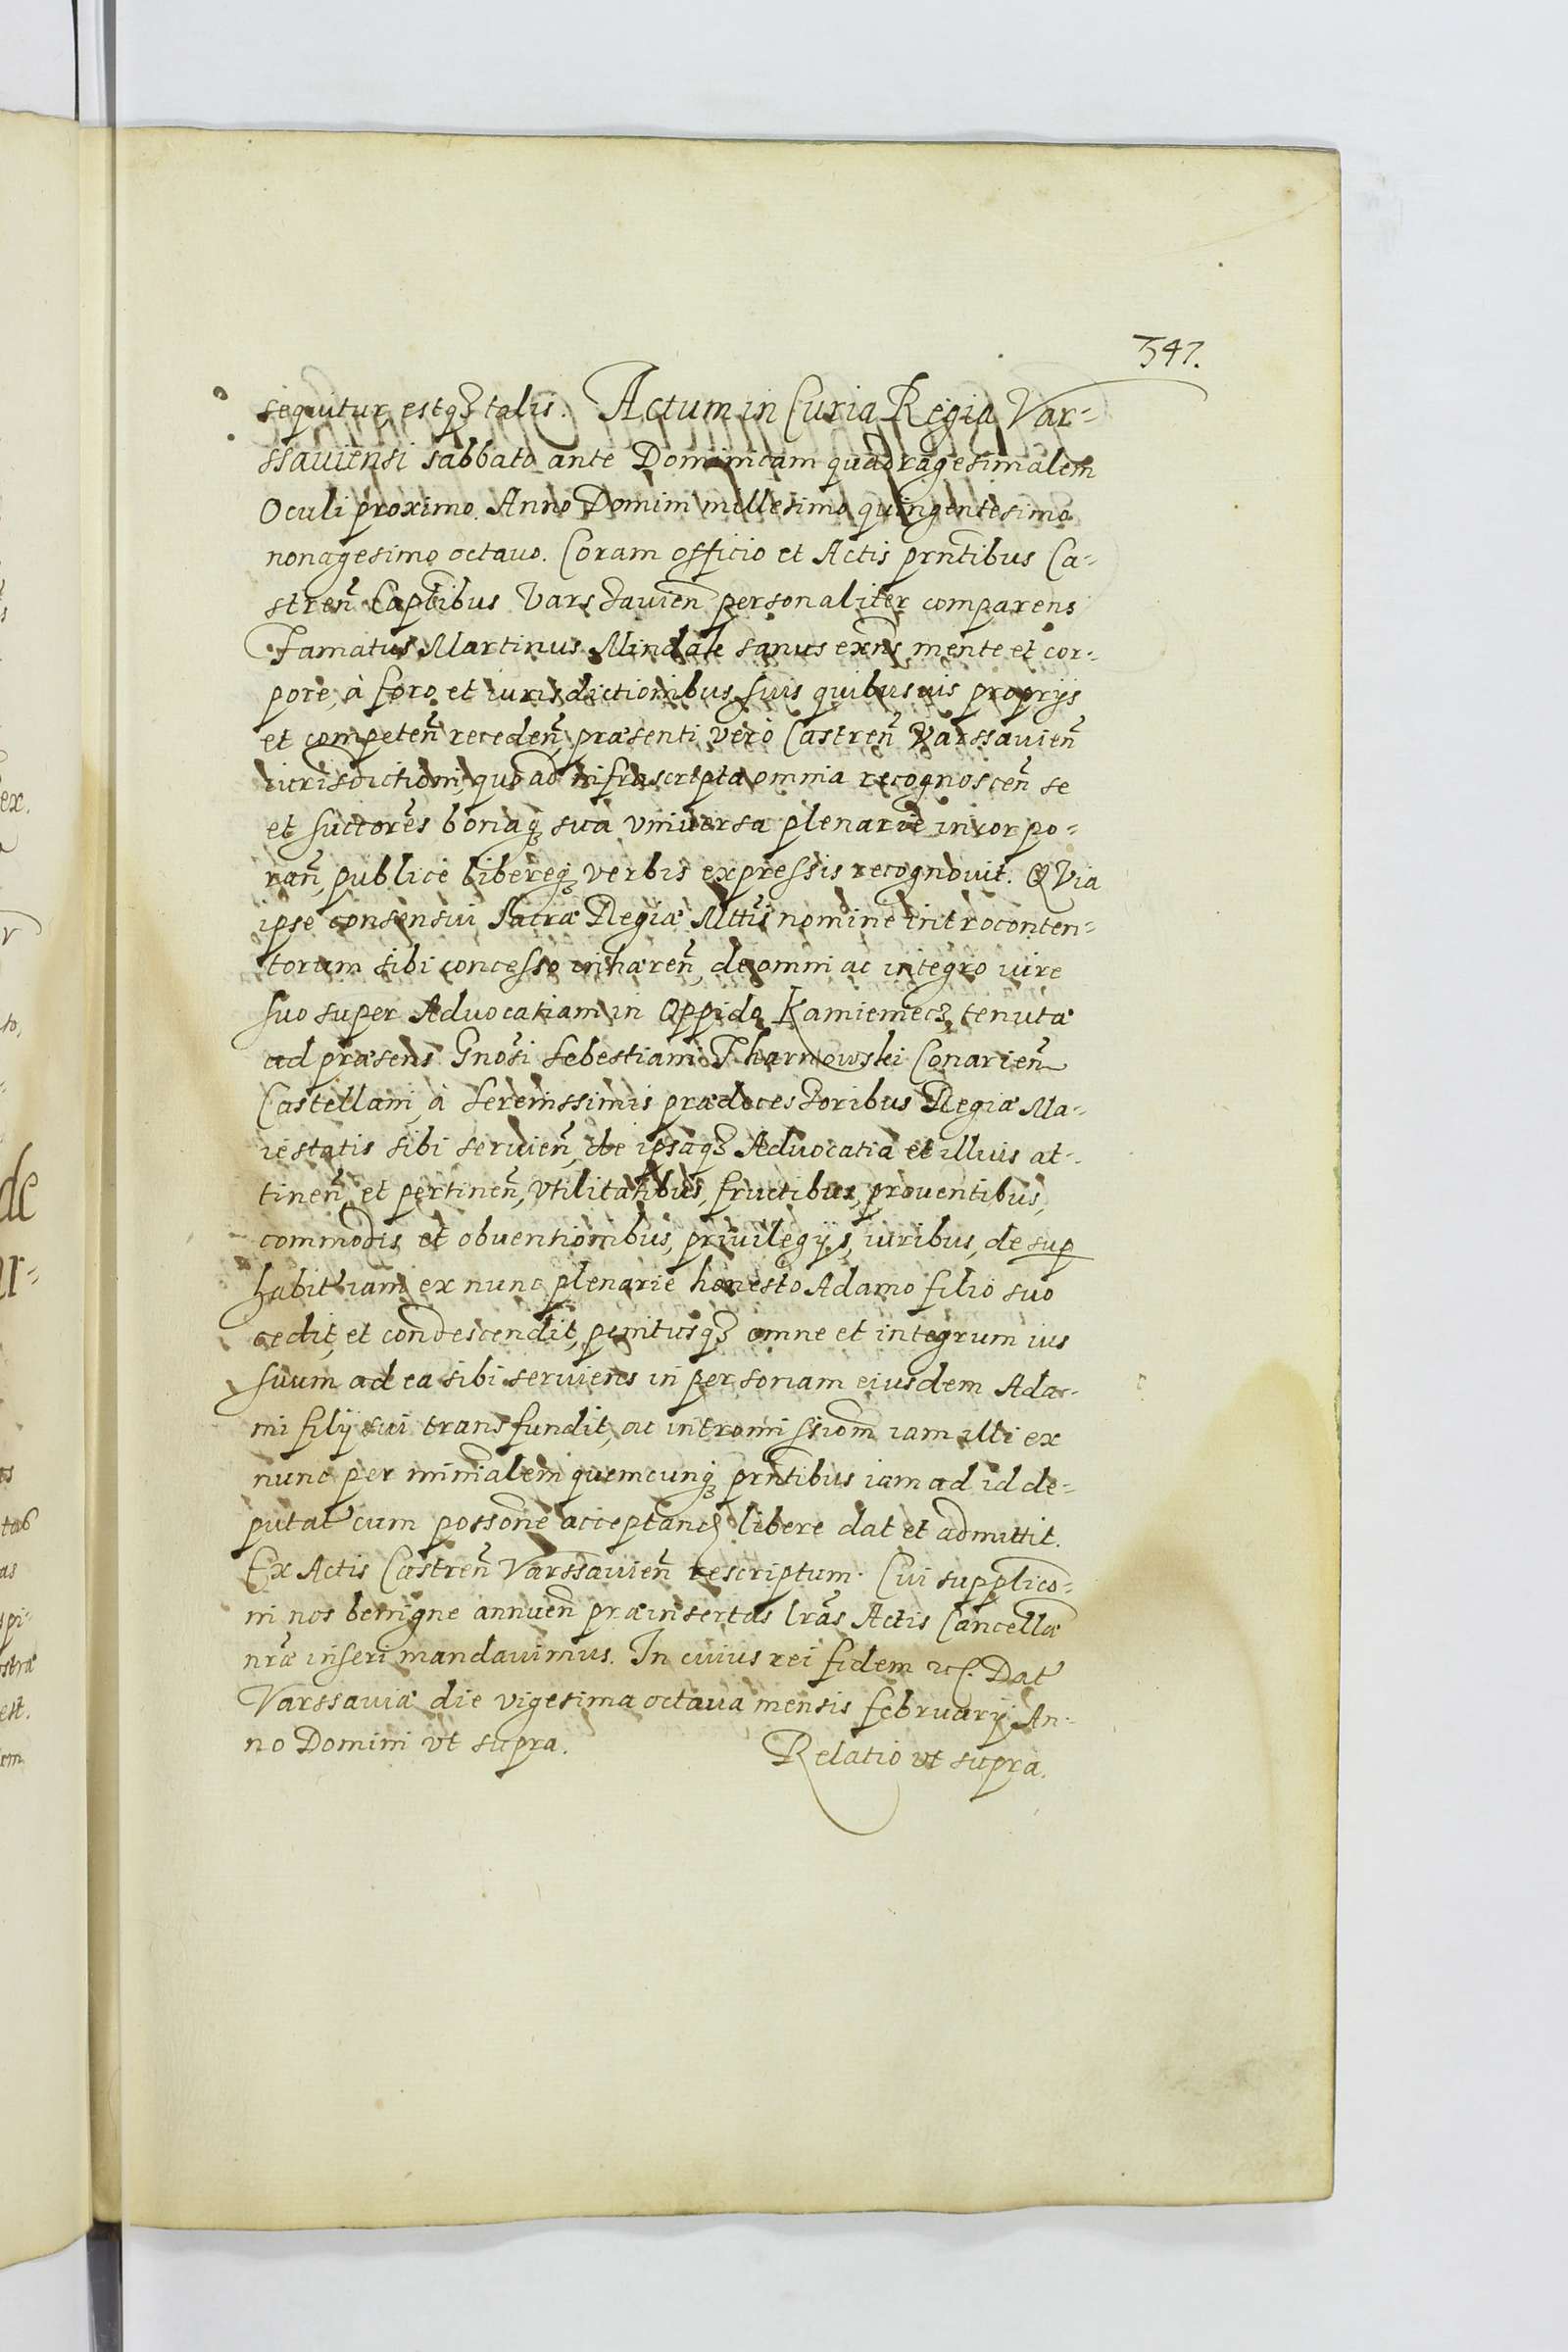 347.
sequitur, estq3 talis. Actum in Curia Regia Var-
ssauiensi sabbato ante Dominicam quadragesimalem
Oculi proximo. Anno Domini millesimo quingentesimo
nonagesimo octauo. Coram officio et Actis prntibus Ca-
stren̄ Captlibus Varssauien̄ personaliter comparens
Famatus Martinus Mindale sanus exn̄s mente et cor-
pore, à foro et iurisdictionibus suis quibusuis proprijs
et competen̄ receden̄, præsenti verò Castren̄ Varssauien̄
iurisdictioni, quo ad infrascripta omnia recognoscen̄ se
et succores bonaq3 sua vniuersa plenarie incorpo-
ran̄, publicè liberèq3 verbis expressis recognouit. QVia
ipse consensui Sacræ Regiæ Mttis nomine introconten-
torum sibi concesso inhæren̄, de omni ac integro iure
suo super Aduocatiam in Oppido Kamieniec3, tenutæ
ad præsens Gnosi Sebestiani Tharnowski Conarien̄
Castellani, à Serenissimis prædecessoribus Regiæ Ma-
iestatis sibi seruien̄, de ipsaq3 Aduocatia et illius at-
tinen̄, et pertinen̄, vtilitatibus, fructibus, prouentibus,
commodis et obuentionibus, priuilegijs, iuribus, de sup
habit iam ex nunc plenarie honesto Adamo filio suo
cedit, et condescendit, penitusq3 omne et integrum ius
suum ad ea sibi seruiens in personam eiusdem Ada-
mi filij sui transfundit, ac intromissiom iam illi ex
nunc per minialem quemcunq3 prntibus iam ad id de-
putat cum possone acceptand libere dat et admittit.
Ex Actis Castren̄ Varssauien̄ rescriptum. Cui supplico-
ni nos benigne annuen̄ præinsertas lrās Actis Cancellæ
nræ inseri mandauimus. In cuius rei fidem etc. Dat
Varssauiæ die vigesima octaua mensis februarij An-
no Domini vt supra.
Relatio vt supra.